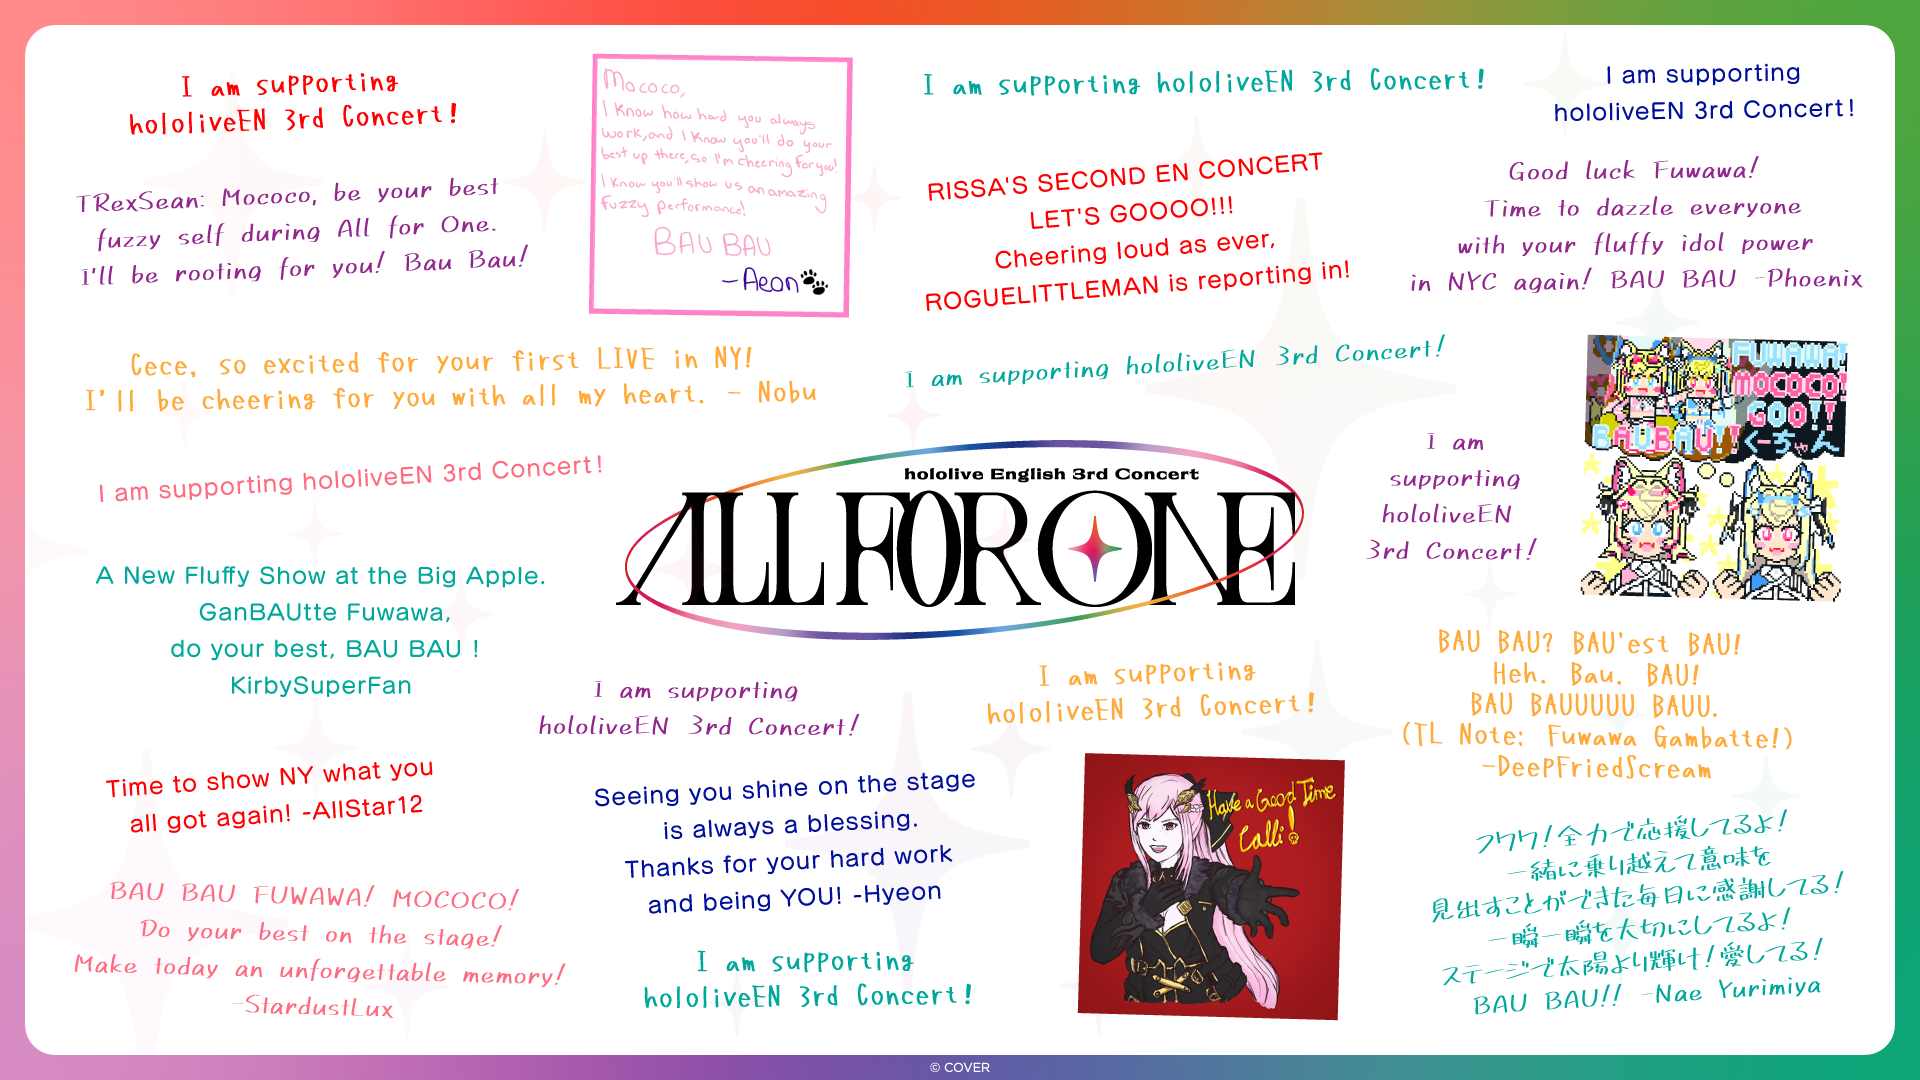 I am supporting
hololiveEN 3rd Concert!
TRexSean: Mococo, be your best
fuzzy self during All for One.
I'll be rooting for you! Bau Bau!
Mococo,
I know how hard you always
work, and I know you'll do your
best up there, so I'm cheering for you!
I know you'll show us an amazing
fuzzy performance!
BAU BAU
-Aeon
I am supporting hololiveEN 3rd Concert!
RISSA'S SECOND EN CONCERT
LET'S GOOOO!!!
Cheering loud as ever,
ROGUELITTLEMAN is reporting in!
I am supporting
hololiveEN 3rd Concert!
Good luck Fuwawa!
Time to dazzle everyone
with your fluffy idol power
in NYC again! BAU BAU -Phoenix
Cece, so excited for your first LIVE in NY!
I'll be cheering for you with all my heart. - Nobu
I am supporting hololiveEN 3rd Concert!
FUWAWA!
MOCOCO!
GOO!!
BAUBAU!!
くーちゃん
I am supporting hololiveEN 3rd Concert!
hololive English 3rd Concert
ALL FOR ONE
I am
supporting
hololiveEN
3rd Concert!
A New Fluffy Show at the Big Apple.
GanBAUtte Fuwawa,
do your best, BAU BAU !
KirbySuperFan
I am supporting
hololiveEN 3rd Concert!
I am supporting
hololiveEN 3rd Concert!
BAU BAU? BAU'est BAU!
Heh. Bau. BAU!
BAU BAUUUUU BAUU.
(TL Note: Fuwawa Gambatte!)
-DeepFriedScream
Time to show NY what you
all got again! -AllStar12
Seeing you shine on the stage
is always a blessing.
Thanks for your hard work
and being YOU! -Hyeon
Have a Good Time
Calli!
フワワ！全力で応援してるよ！
一緒に乗り越えて意味を
見出すことができた毎日に感謝してる！
一瞬一瞬を大切にしてるよ！
ステージで太陽より輝け！愛してる！
BAU BAU!! -Nae Yurimiya
BAU BAU FUWAWA! MOCOCO!
Do your best on the stage!
Make today an unforgettable memory!
-StardustLux
I am supporting
hololiveEN 3rd Concert!
© COVER